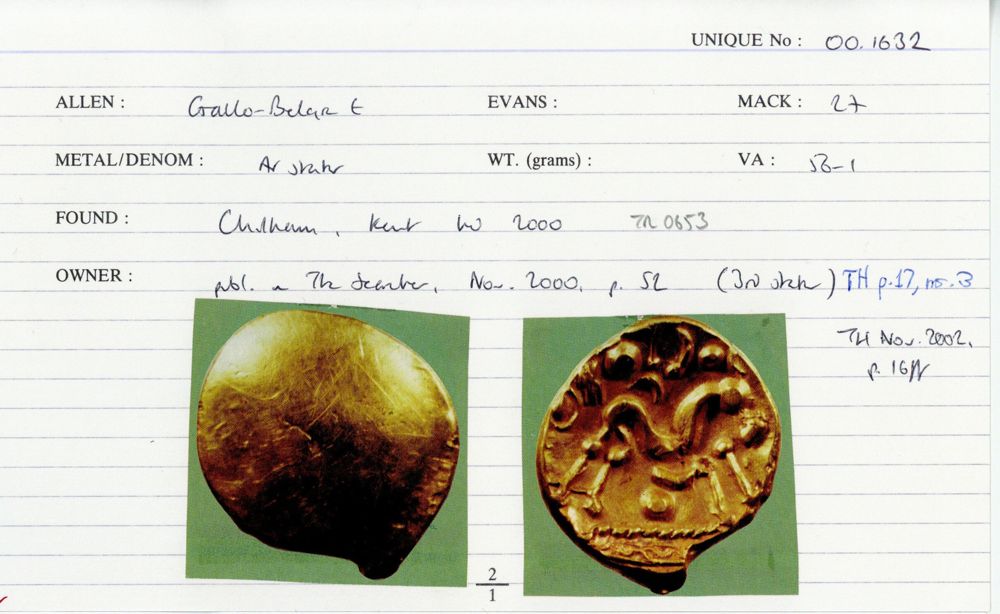 UNIQUE No : 00.1632
ALLEN : Gallo-Belgic E EVANS : MACK : 27
METAL/DENOM : AV stater WT. (grams) : VA : 5B-1
FOUND : Chilham, Kent 2000 TR 0653
OWNER : publ. in The Searcher, Nov. 2000, p. 52 (3rd stater) TH p.17, no. 3
TH Nov. 2002,
p. 16ff
2
1